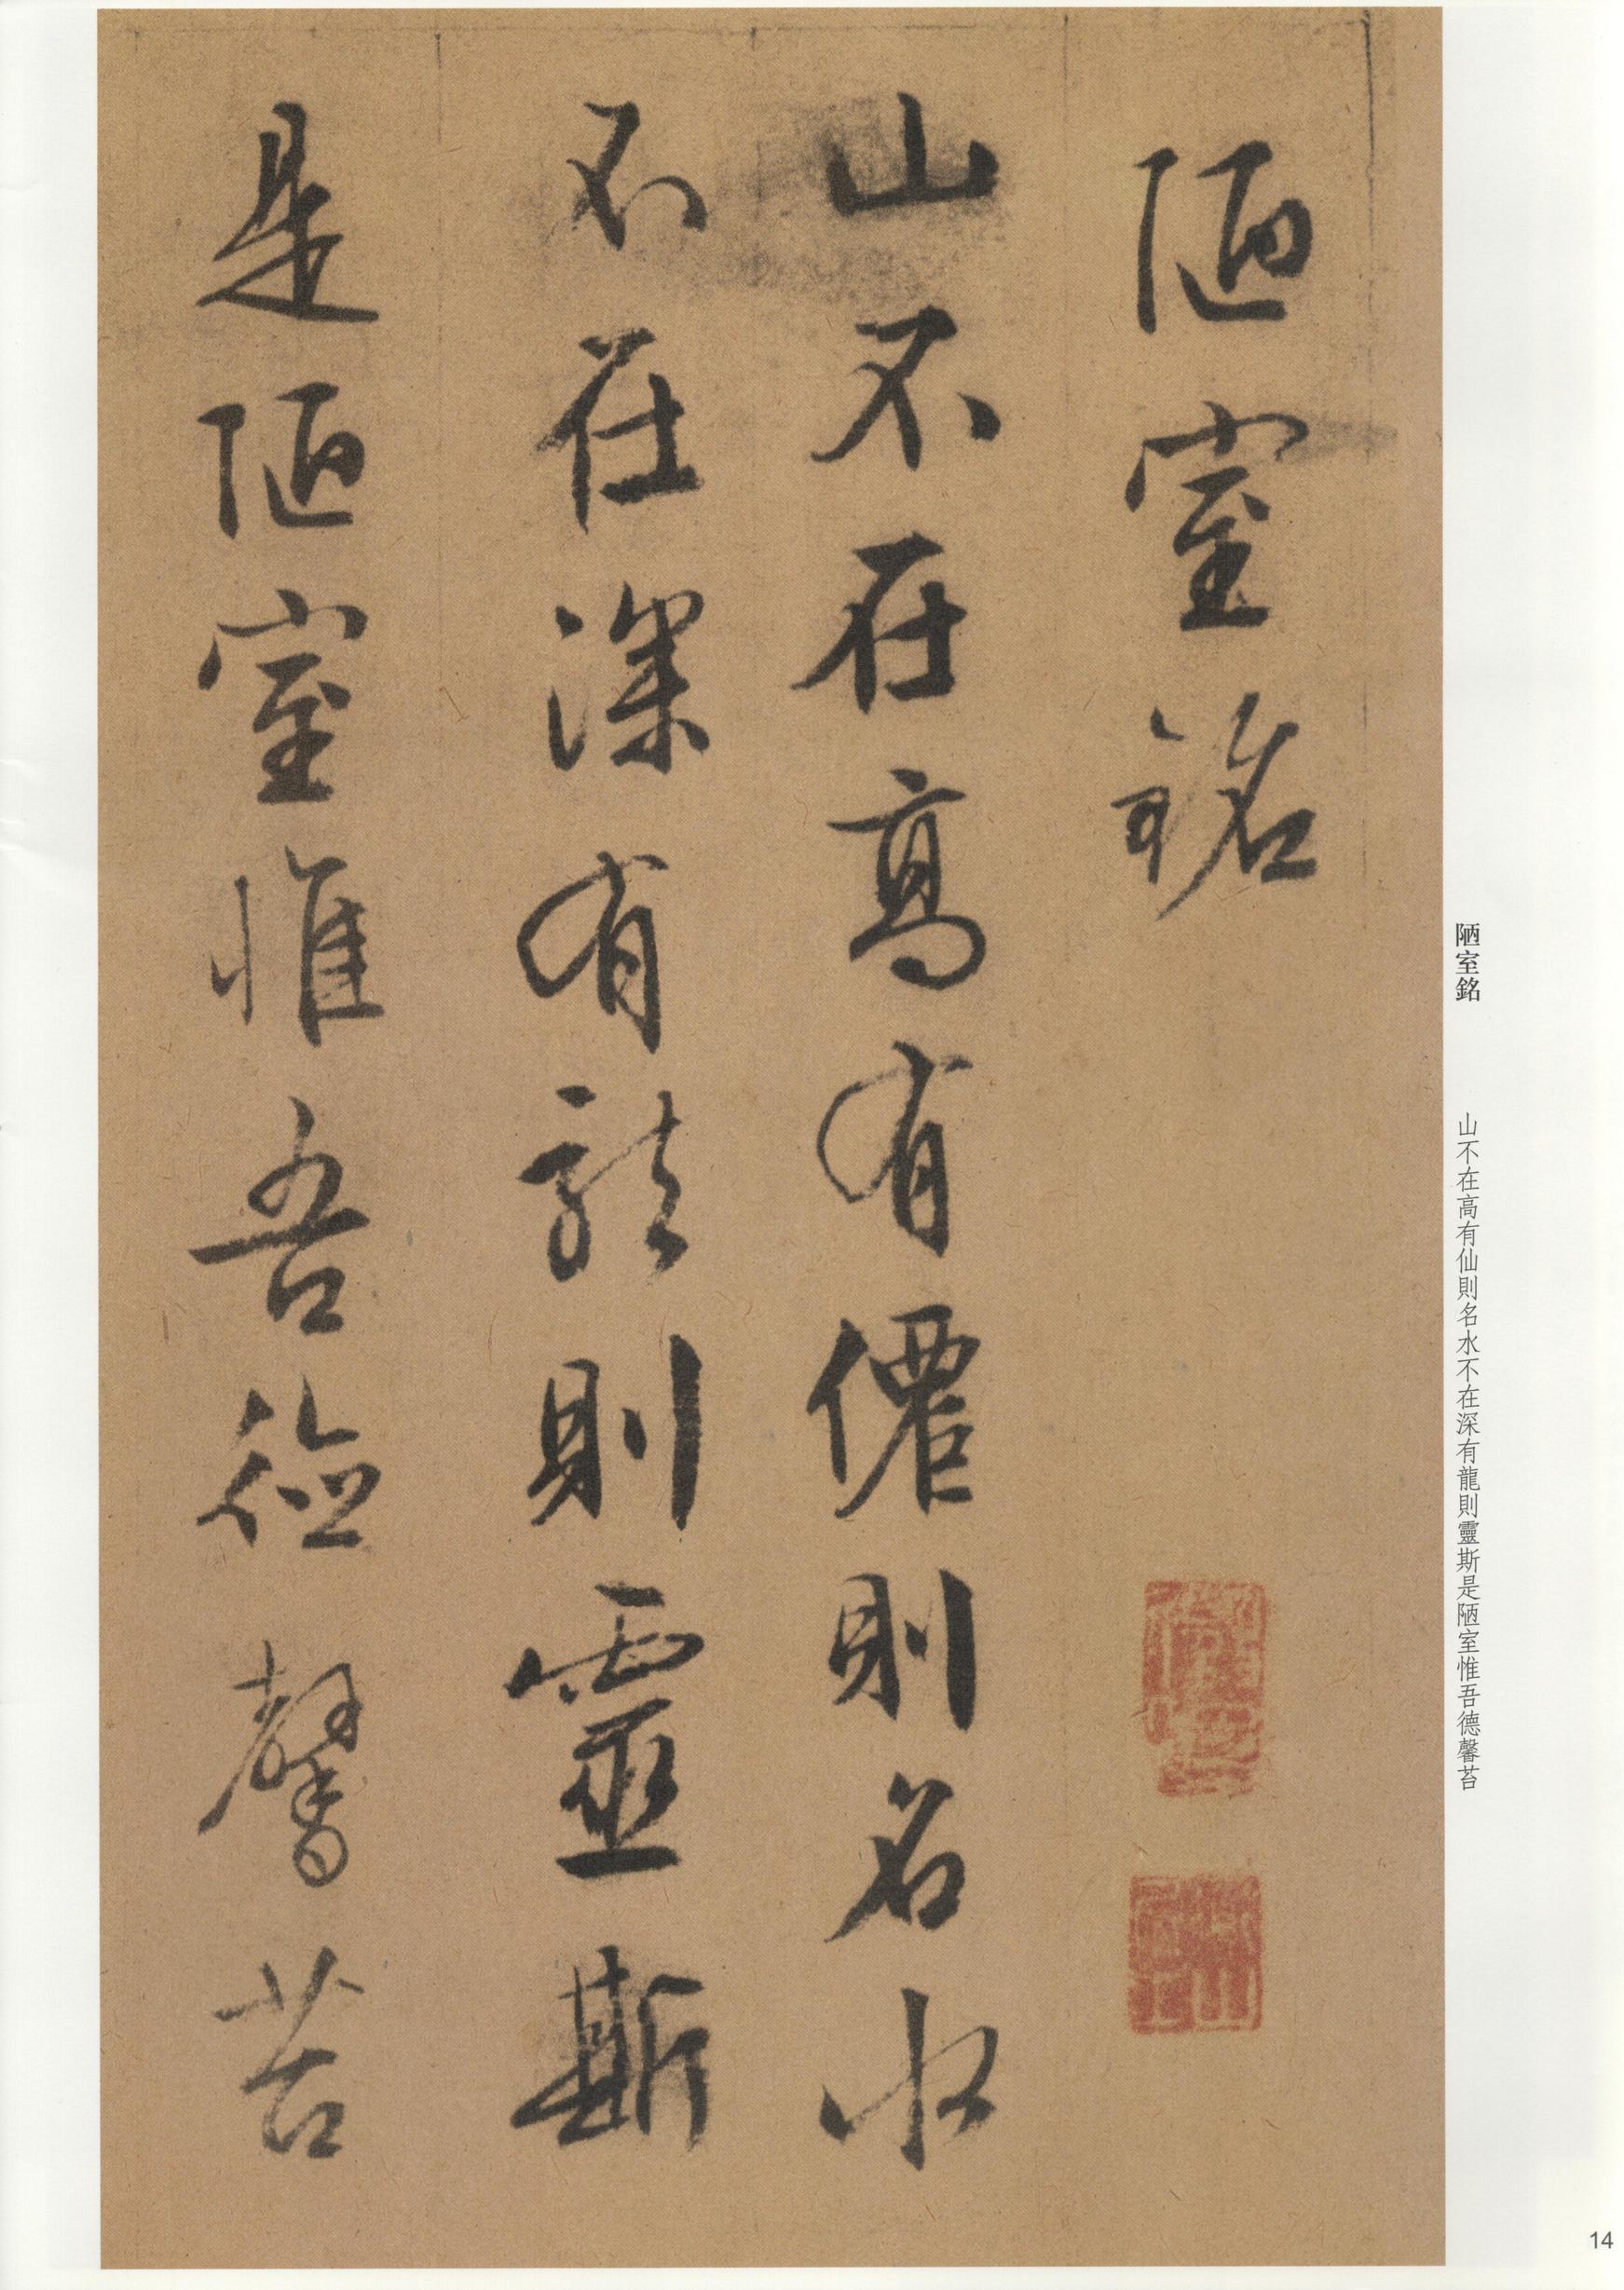 陋室銘
山不在高有僊則名水
不在深有龍則靈斯
是陋室惟吾德馨苔
陋室銘
山不在高有仙則名水不在深有龍則靈斯是陋室惟吾德馨苔
14